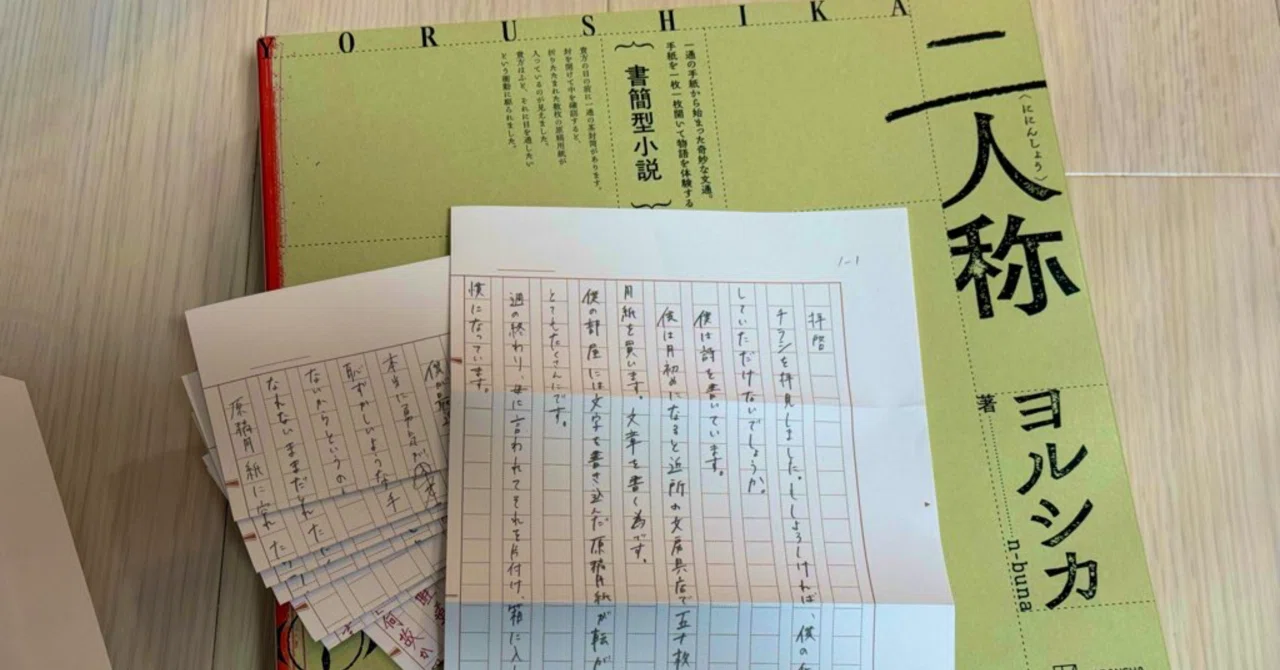 YORUSHIKA
二人称
〈ににんしょう〉
ヨルシカ
著
n-buna
一通の手紙から始まった奇妙な文通。
手紙を一枚一枚開いて物語を体験する
書簡型小説
貴方の目の前に一通の茶封筒があります。
封を開けて中を確認すると、
折りたたまれた数枚の原稿用紙が
入っているのが見えました。
貴方はふと、それに目を通したい
という衝動に駆られました。
1-1
拝啓
チラシを拝見しました。もしよろしければ、僕の
していただけないでしょうか。
僕は詩を書いています。
僕は月初めになると近所の文房具店で五十枚
用紙を買います。文章を書く為です。
僕の部屋には文字を書き込んだ原稿用紙が転が
とてもたくさんにです。
週の終わり、母に言われてそれを片付け、箱に入
慣になっています。
本当に勇気が
恥ずかしいような手
ないからというの
なれないままだれ
原稿用紙に
何故か